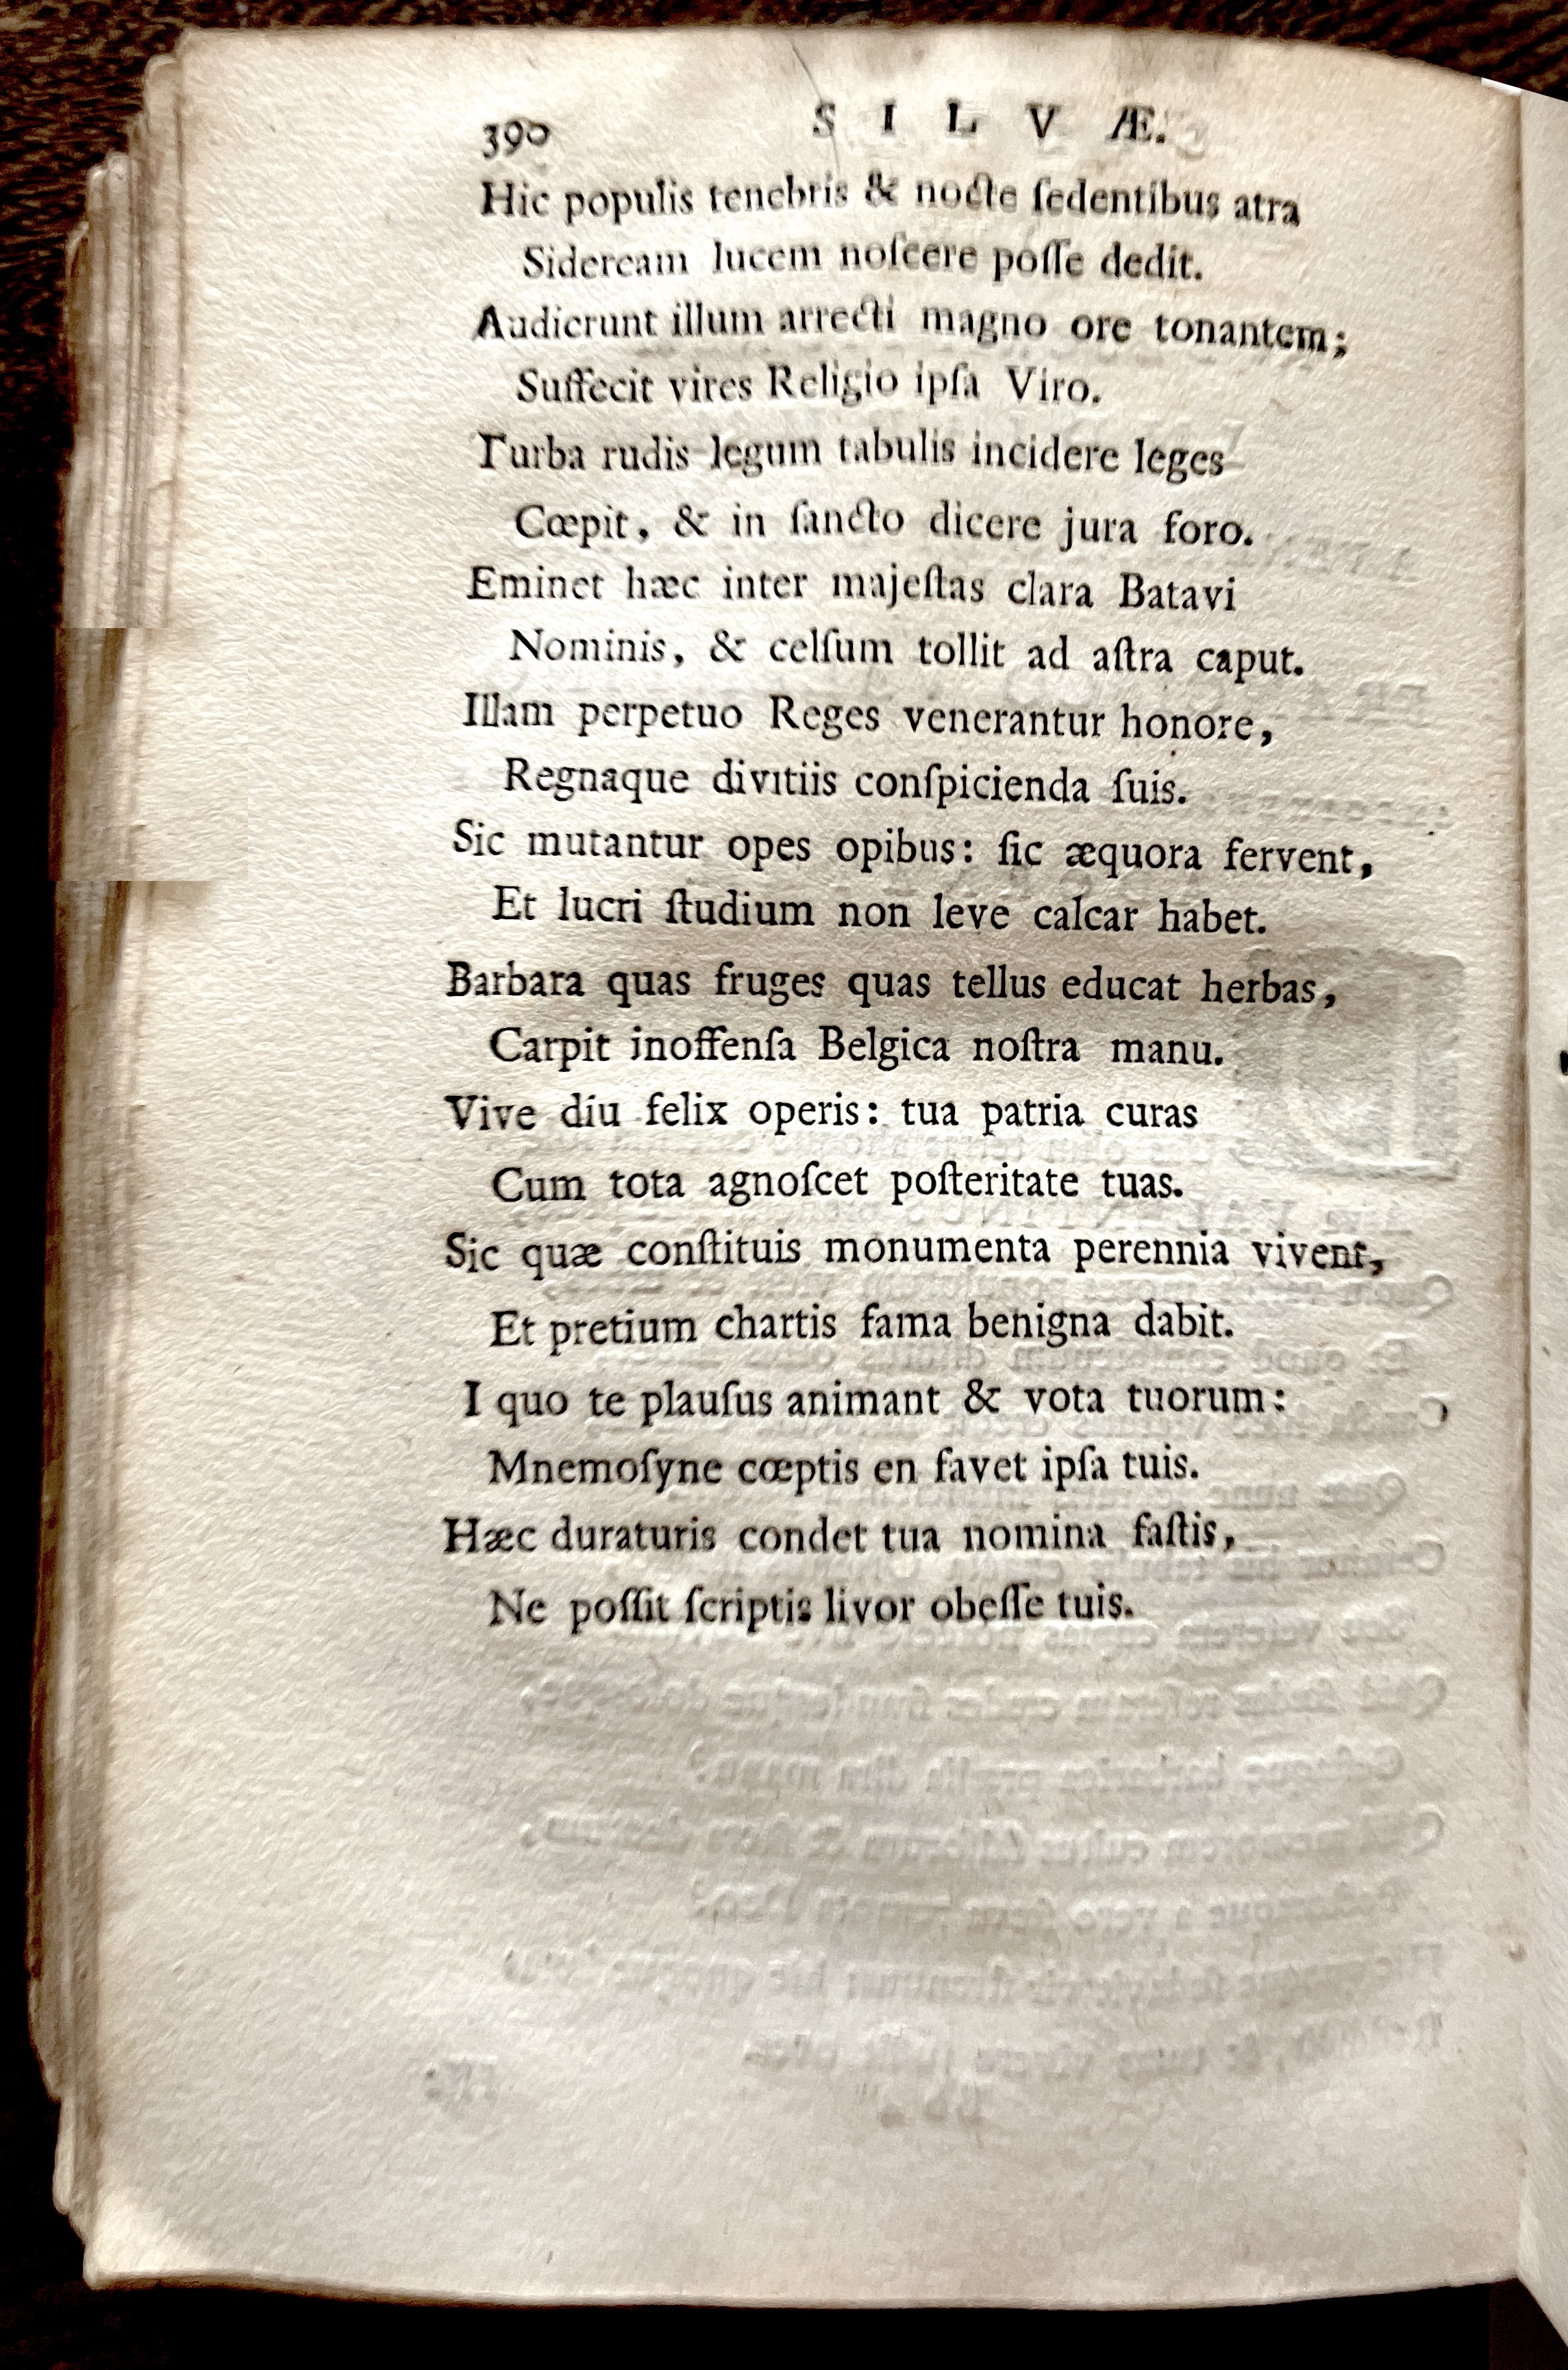 390 SILVÆ.
Hic populis tenebris & nocte ſedentibus atra
Sideream lucem noſcere poſſe dedit.
Audierunt illum arrecti magno ore tonantem;
Suffecit vires Religio ipſa Viro.
Turba rudis legum tabulis incidere leges
Cœpit, & in ſancto dicere jura foro.
Eminet hæc inter majeſtas clara Batavi
Nominis, & celſum tollit ad aſtra caput.
Illam perpetuo Reges venerantur honore,
Regnaque divitiis conſpicienda ſuis.
Sic mutantur opes opibus: ſic æquora fervent,
Et lucri ſtudium non leve calcar habet.
Barbara quas fruges quas tellus educat herbas,
Carpit inoffenſa Belgica noſtra manu.
Vive diu felix operis: tua patria curas
Cum tota agnoſcet poſteritate tuas.
Sic quæ conſtituis monumenta perennia vivent,
Et pretium chartis fama benigna dabit.
I quo te plauſus animant & vota tuorum:
Mnemoſyne cœptis en favet ipſa tuis.
Hæc duraturis condet tua nomina faſtis,
Ne poſſit ſcriptis livor obeſſe tuis.